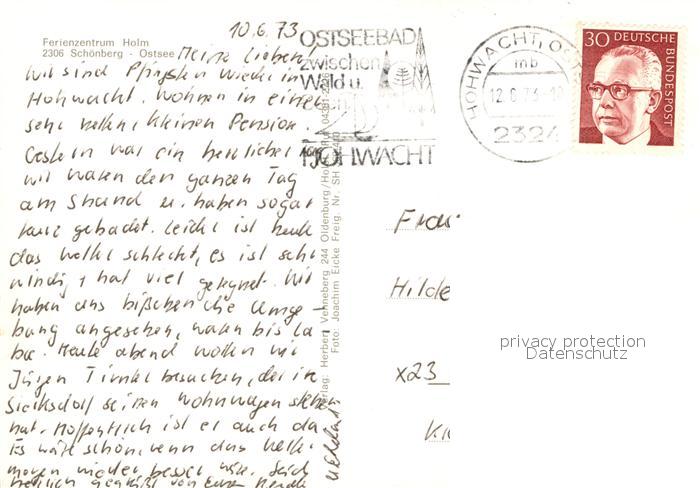 10.6.73
Ferienzentrum Holm
2306 Schönberg - Ostsee
Meine Lieben!
Wir sind Pfingsten wieder in
Hohwacht. Wohnen in einer
sehr netten, kleinen Pension.
Gestern war ein herrlicher Tag
wir waren den ganzen Tag
am Strand u. haben sogar
kurz gebadet. Leider ist heute
das Wetter schlecht, es ist sehr
windig + hat viel geregnet. Wir
haben uns bißchen die Umge-
bung angesehen, waren bis La
boe. Heute abend wollen wir
Jürgen besuchen, der in
Sierksdorf seinen Wohnwagen stehen
hat. Hoffentlich ist er auch da.
Es wäre schön, wenn das Wetter
morgen wieder besser wäre. Seid
herzlich gegrüßt von Eurer
OSTSEEBAD
zwischen
Wald u.
HOHWACHT
HOHWACHT, OSTSEE
mb
12.6.73
2324
30 DEUTSCHE
BUNDESPOST
Verlag: Herbert Venneberg 244 Oldenburg/Ho
Foto: Joachim Eicke Freig. Nr. SH
Frau
Hilde
x23
privacy protection
Datenschutz